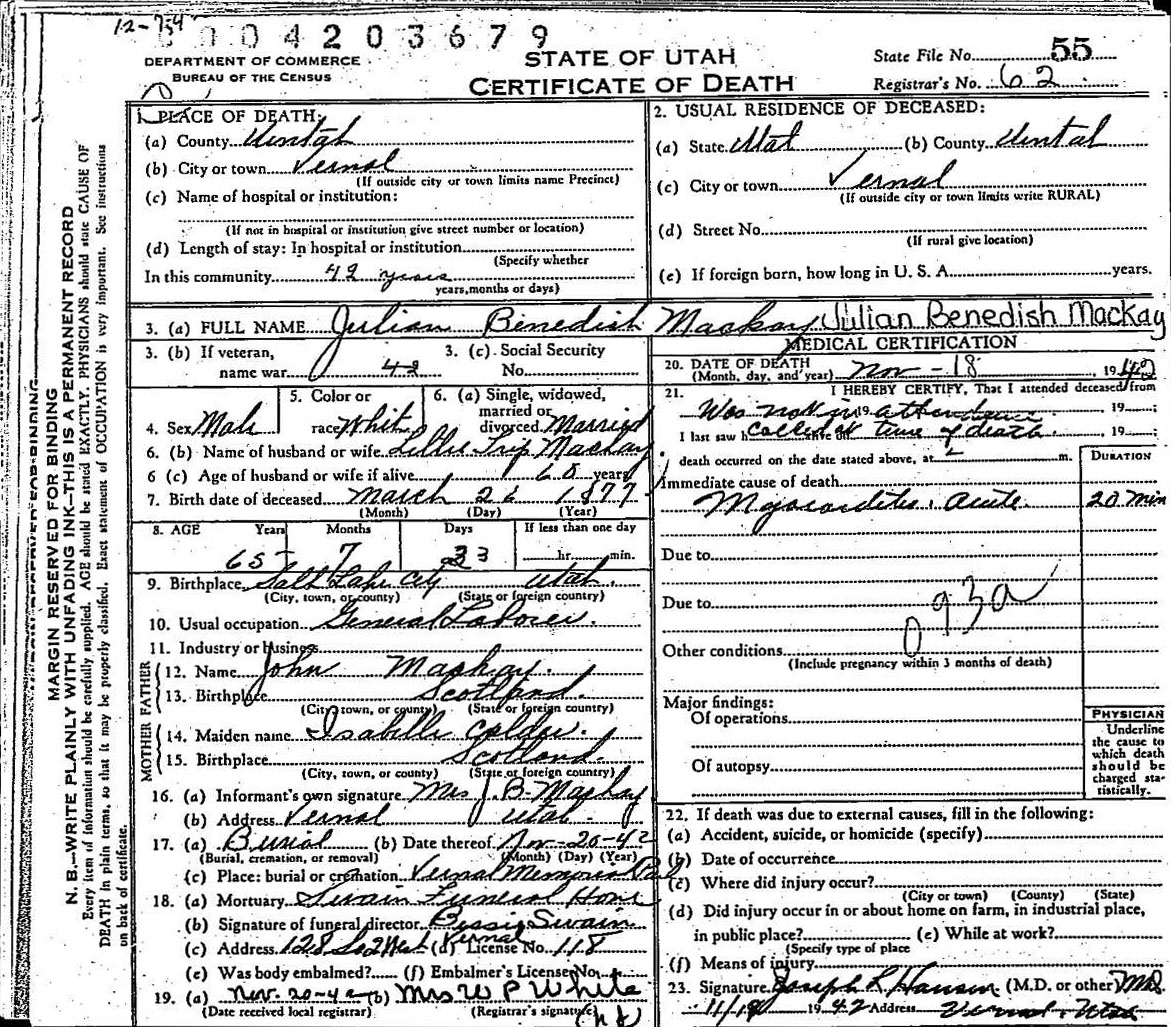 12-754
0004203679
DEPARTMENT OF COMMERCE
BUREAU OF THE CENSUS
STATE OF UTAH
CERTIFICATE OF DEATH
State File No. 55
Registrar's No. 62
MARGIN RESERVED FOR BINDING
N. B.—WRITE PLAINLY WITH UNFADING INK—THIS IS A PERMANENT RECORD
Every item of information should be carefully supplied. AGE should be stated EXACTLY. PHYSICIANS should state CAUSE OF
DEATH in plain terms, so that it may be properly classified. Exact statement of OCCUPATION is very important. See instructions
on back of certificate.
1. PLACE OF DEATH:
(a) County Uintah
(b) City or town Vernal
(If outside city or town limits name Precinct)
(c) Name of hospital or institution:
(If not in hospital or institution give street number or location)
(d) Length of stay: In hospital or institution
(Specify whether
In this community 42 years
years, months or days)
2. USUAL RESIDENCE OF DECEASED:
(a) State Utah (b) County Uintah
(c) City or town Vernal
(If outside city or town limits write RURAL)
(d) Street No.
(If rural give location)
(e) If foreign born, how long in U. S. A. years.
3. (a) FULL NAME Julian Benedish Mackay Julian Benedish Mackay
3. (b) If veteran, name war 42
3. (c) Social Security No.
4. Sex Male
5. Color or race White
6. (a) Single, widowed, married or divorced Married
6. (b) Name of husband or wife Lillie Trip Mackay
6 (c) Age of husband or wife if alive 60 years
7. Birth date of deceased March 26 1877
(Month) (Day) (Year)
8. AGE Years Months Days If less than one day
65 7 23 hr. min.
9. Birthplace Salt Lake City Utah
(City, town, or county) (State or foreign country)
10. Usual occupation General Laborer.
11. Industry or business
FATHER
12. Name John Mackay.
13. Birthplace Scotland.
(City, town, or county) (State or foreign country)
MOTHER
14. Maiden name Isabelle Calder.
15. Birthplace Scotland.
(City, town, or county) (State or foreign country)
16. (a) Informant's own signature Mrs J. B. Mackay
(b) Address Vernal Utah
17. (a) Burial (b) Date thereof Nov-20-42
(Burial, cremation, or removal) (Month) (Day) (Year)
(c) Place: burial or cremation Vernal Memorial Park
18. (a) Mortuary Swain Funeral Home
(b) Signature of funeral director Bessie Swain
(c) Address 128 So 2 West Vernal (d) License No. 118
(e) Was body embalmed? (f) Embalmer's License No.
19. (a) Nov. 20-42 (b) Mrs W P White
(Date received local registrar) (Registrar's signature)
MEDICAL CERTIFICATION
20. DATE OF DEATH Nov - 18 , 1942
(Month, day, and year)
21. I HEREBY CERTIFY, That I attended deceased from
Was not in 19 attendance , 19 ;
I last saw h called at time of death , 19 ;
death occurred on the date stated above, at m.
DURATION
Immediate cause of death
Myocarditis. Acute. 20 min
Due to
Due to 093a
Other conditions
(Include pregnancy within 3 months of death)
Major findings:
Of operations
Of autopsy
PHYSICIAN
Underline
the cause to
which death
should be
charged sta-
tistically.
22. If death was due to external causes, fill in the following:
(a) Accident, suicide, or homicide (specify)
(b) Date of occurrence
(c) Where did injury occur?
(City or town) (County) (State)
(d) Did injury occur in or about home on farm, in industrial place,
in public place? (e) While at work?
(Specify type of place
(f) Means of injury
23. Signature Joseph L. Hansen (M.D. or other MD
11/18 1942 Address Vernal, Utah